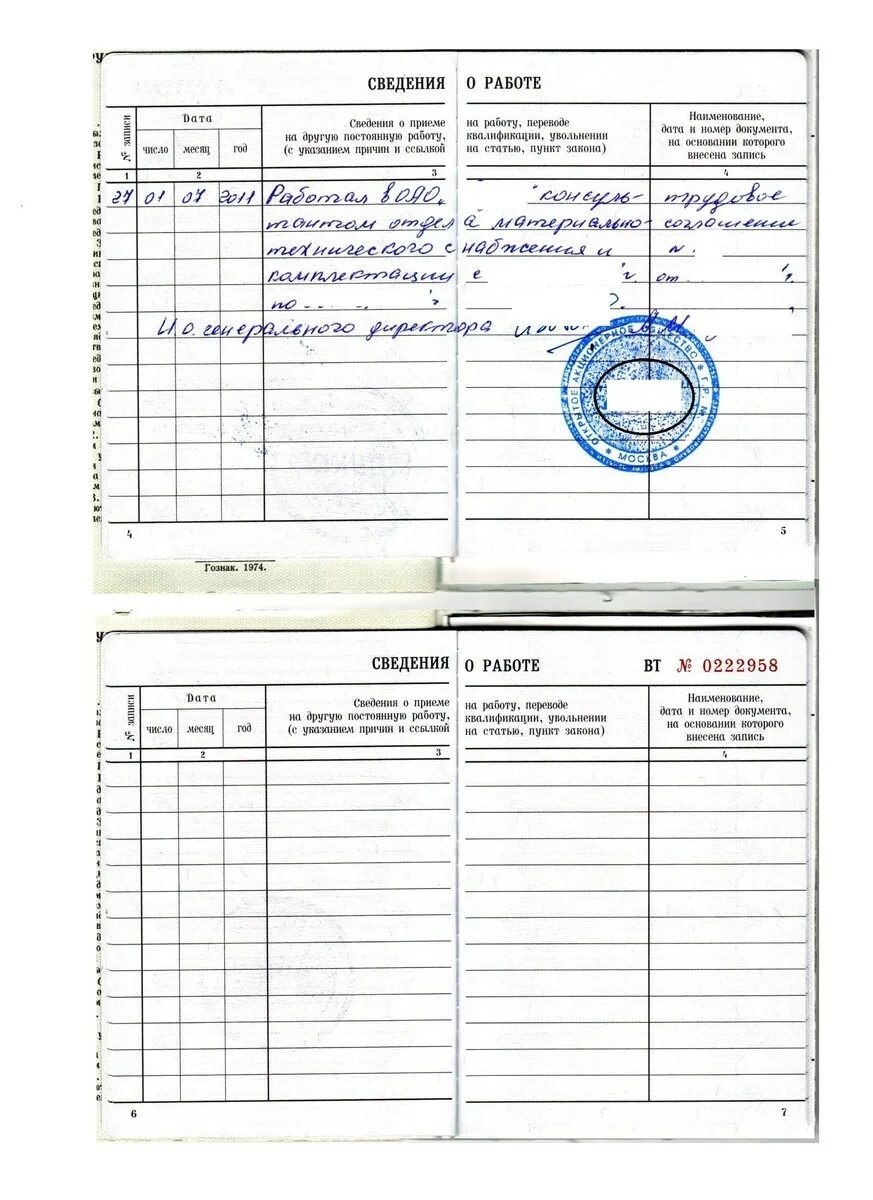 СВЕДЕНИЯ О РАБОТЕ
№ записи
Дата
число месяц год
Сведения о приеме на работу, переводе
на другую постоянную работу, квалификации, увольнении
(с указанием причин и ссылкой на статью, пункт закона)
Наименование,
дата и номер документа,
на основании которого
внесена запись
1 2 3 4
27 01 07 2011 Работал в ОАО " " консуль- трудовое
тантом отдела материально- соглашение
технического снабжения и №
комплектации с г. от г.
по г.
И.о. генерального директора
ОТКРЫТОЕ АКЦИОНЕРНОЕ ОБЩЕСТВО * Г.Р. №
* МОСКВА *
4 5
Гознак. 1974.
СВЕДЕНИЯ О РАБОТЕ ВТ № 0222958
№ записи
Дата
число месяц год
Сведения о приеме на работу, переводе
на другую постоянную работу, квалификации, увольнении
(с указанием причин и ссылкой на статью, пункт закона)
Наименование,
дата и номер документа,
на основании которого
внесена запись
1 2 3 4
6 7